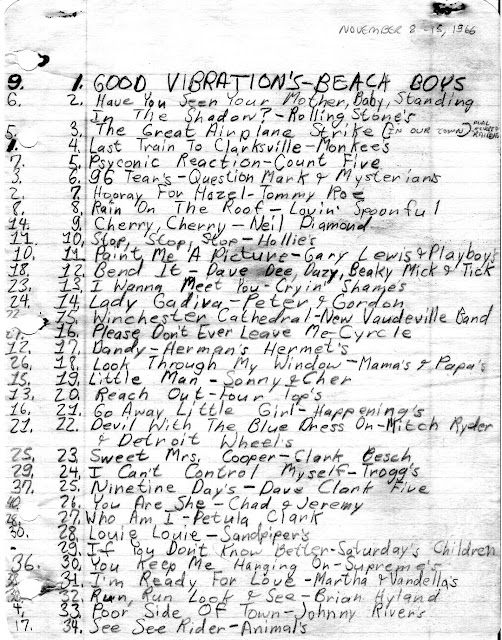 NOVEMBER 8-15, 1966
9. 1. GOOD VIBRATION'S-BEACH BOYS
6. 2. Have You Seen Your Mother, Baby, Standing
In The Shadow?-Rolling Stone's
5. 3. The Great Airplane Strike (IN OUR TOWN) PAUL REVERE & RAIDERS
1. 4. Last Train To Clarksville-Monkee's
7. 5. Psyconic Reaction-Count Five
3 6. 96 Tear's-Question Mark & Mysterians
2 7. Hooray For Hazel-Tommy Roe
8. 8. Rain On The Roof-Lovin' Spoonful
14. 9. Cherry, Cherry-Neil Diamond
11. 10. Stop, Stop, Stop-Hollie's
10. 11. Paint Me A Picture-Gary Lewis & Playboy's
18. 12. Bend It-Dave Dee, Dozy, Beaky Mick & Tick
23. 13. I Wanna Meet You-Cryin' Shame's
24. 14. Lady Gadiva-Peter & Gordon
22 15. Winchester Cathedral-New Vaudeville Band
16. Please Don't Ever Leave Me-Cyrcle
12. 17. Dandy-Herman's Hermet's
26. 18. Look Through My Window-Mama's & Papa's
15. 19. Little Man-Sonny & Cher
13. 20. Reach Out-Four Top's
16. 21. Go Away Little Girl-Happening's
21. 22. Devil With The Blue Dress On-Mitch Ryder
& Detroit Wheel's
25. 23 Sweet Mrs. Cooper-Clark Besch
29. 24. I Can't Control Myself-Trogg's
37. 25. Ninetine Day's-Dave Clark Five
40. 26. You Are She-Chad & Jeremy
27. Who Am I-Petula Clark
30. 28. Louie Louie-Sandpiper's
- 29. If You Don't Know Better-Saturday's Children
36. 30. You Keep Me Hanging On-Supreme's
31. I'm Ready For Love-Martha & Vandella's
32. Run, Run Look & See-Brian Hyland
4. 33. Poor Side Of Town-Johnny River's
17. 34. See See Rider-Animal's